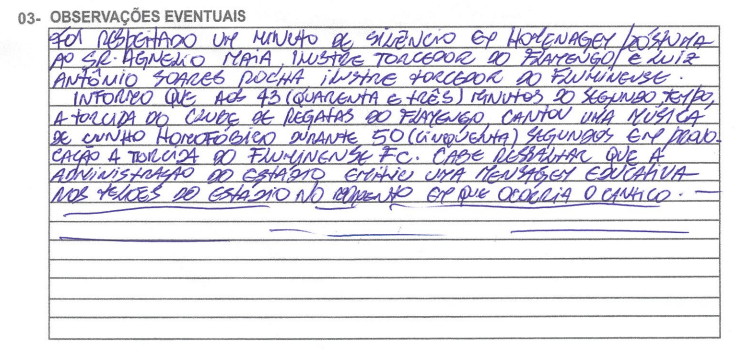 03- OBSERVAÇÕES EVENTUAIS
FOI RESPEITADO UM MINUTO DE SILÊNCIO EM HOMENAGEM PÓSTUMA
AO SR. AGNELIO MAIA, ILUSTRE TORCEDOR DO FLAMENGO, E LUIZ
ANTÔNIO SOARES ROCHA ILUSTRE TORCEDOR DO FLUMINENSE.
INFORMO QUE AOS 43 (QUARENTA E TRÊS) MINUTOS DO SEGUNDO TEMPO,
A TORCIDA DO CLUBE DE REGATAS DO FLAMENGO, CANTOU UMA MÚSICA
DE CUNHO HOMOFÓBICO DURANTE 50 (CINQUENTA) SEGUNDOS EM PROVO-
CAÇÃO A TORCIDA DO FLUMINENSE FC. CABE RESSALTAR QUE A
ADMINISTRAÇÃO DO ESTÁDIO EMITIU UMA MENSAGEM EDUCATIVA
NOS TELÕES DO ESTÁDIO NO MOMENTO EM QUE OCORRIA O CÂNTICO.